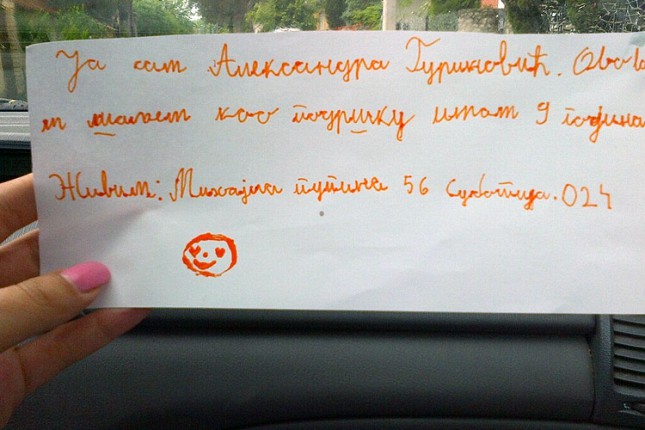 Ја сам Александра Гуриновић. Ово
м шаљем као подршку имам 9 година
Живим: Михајла пупина 56 Суботица. 024